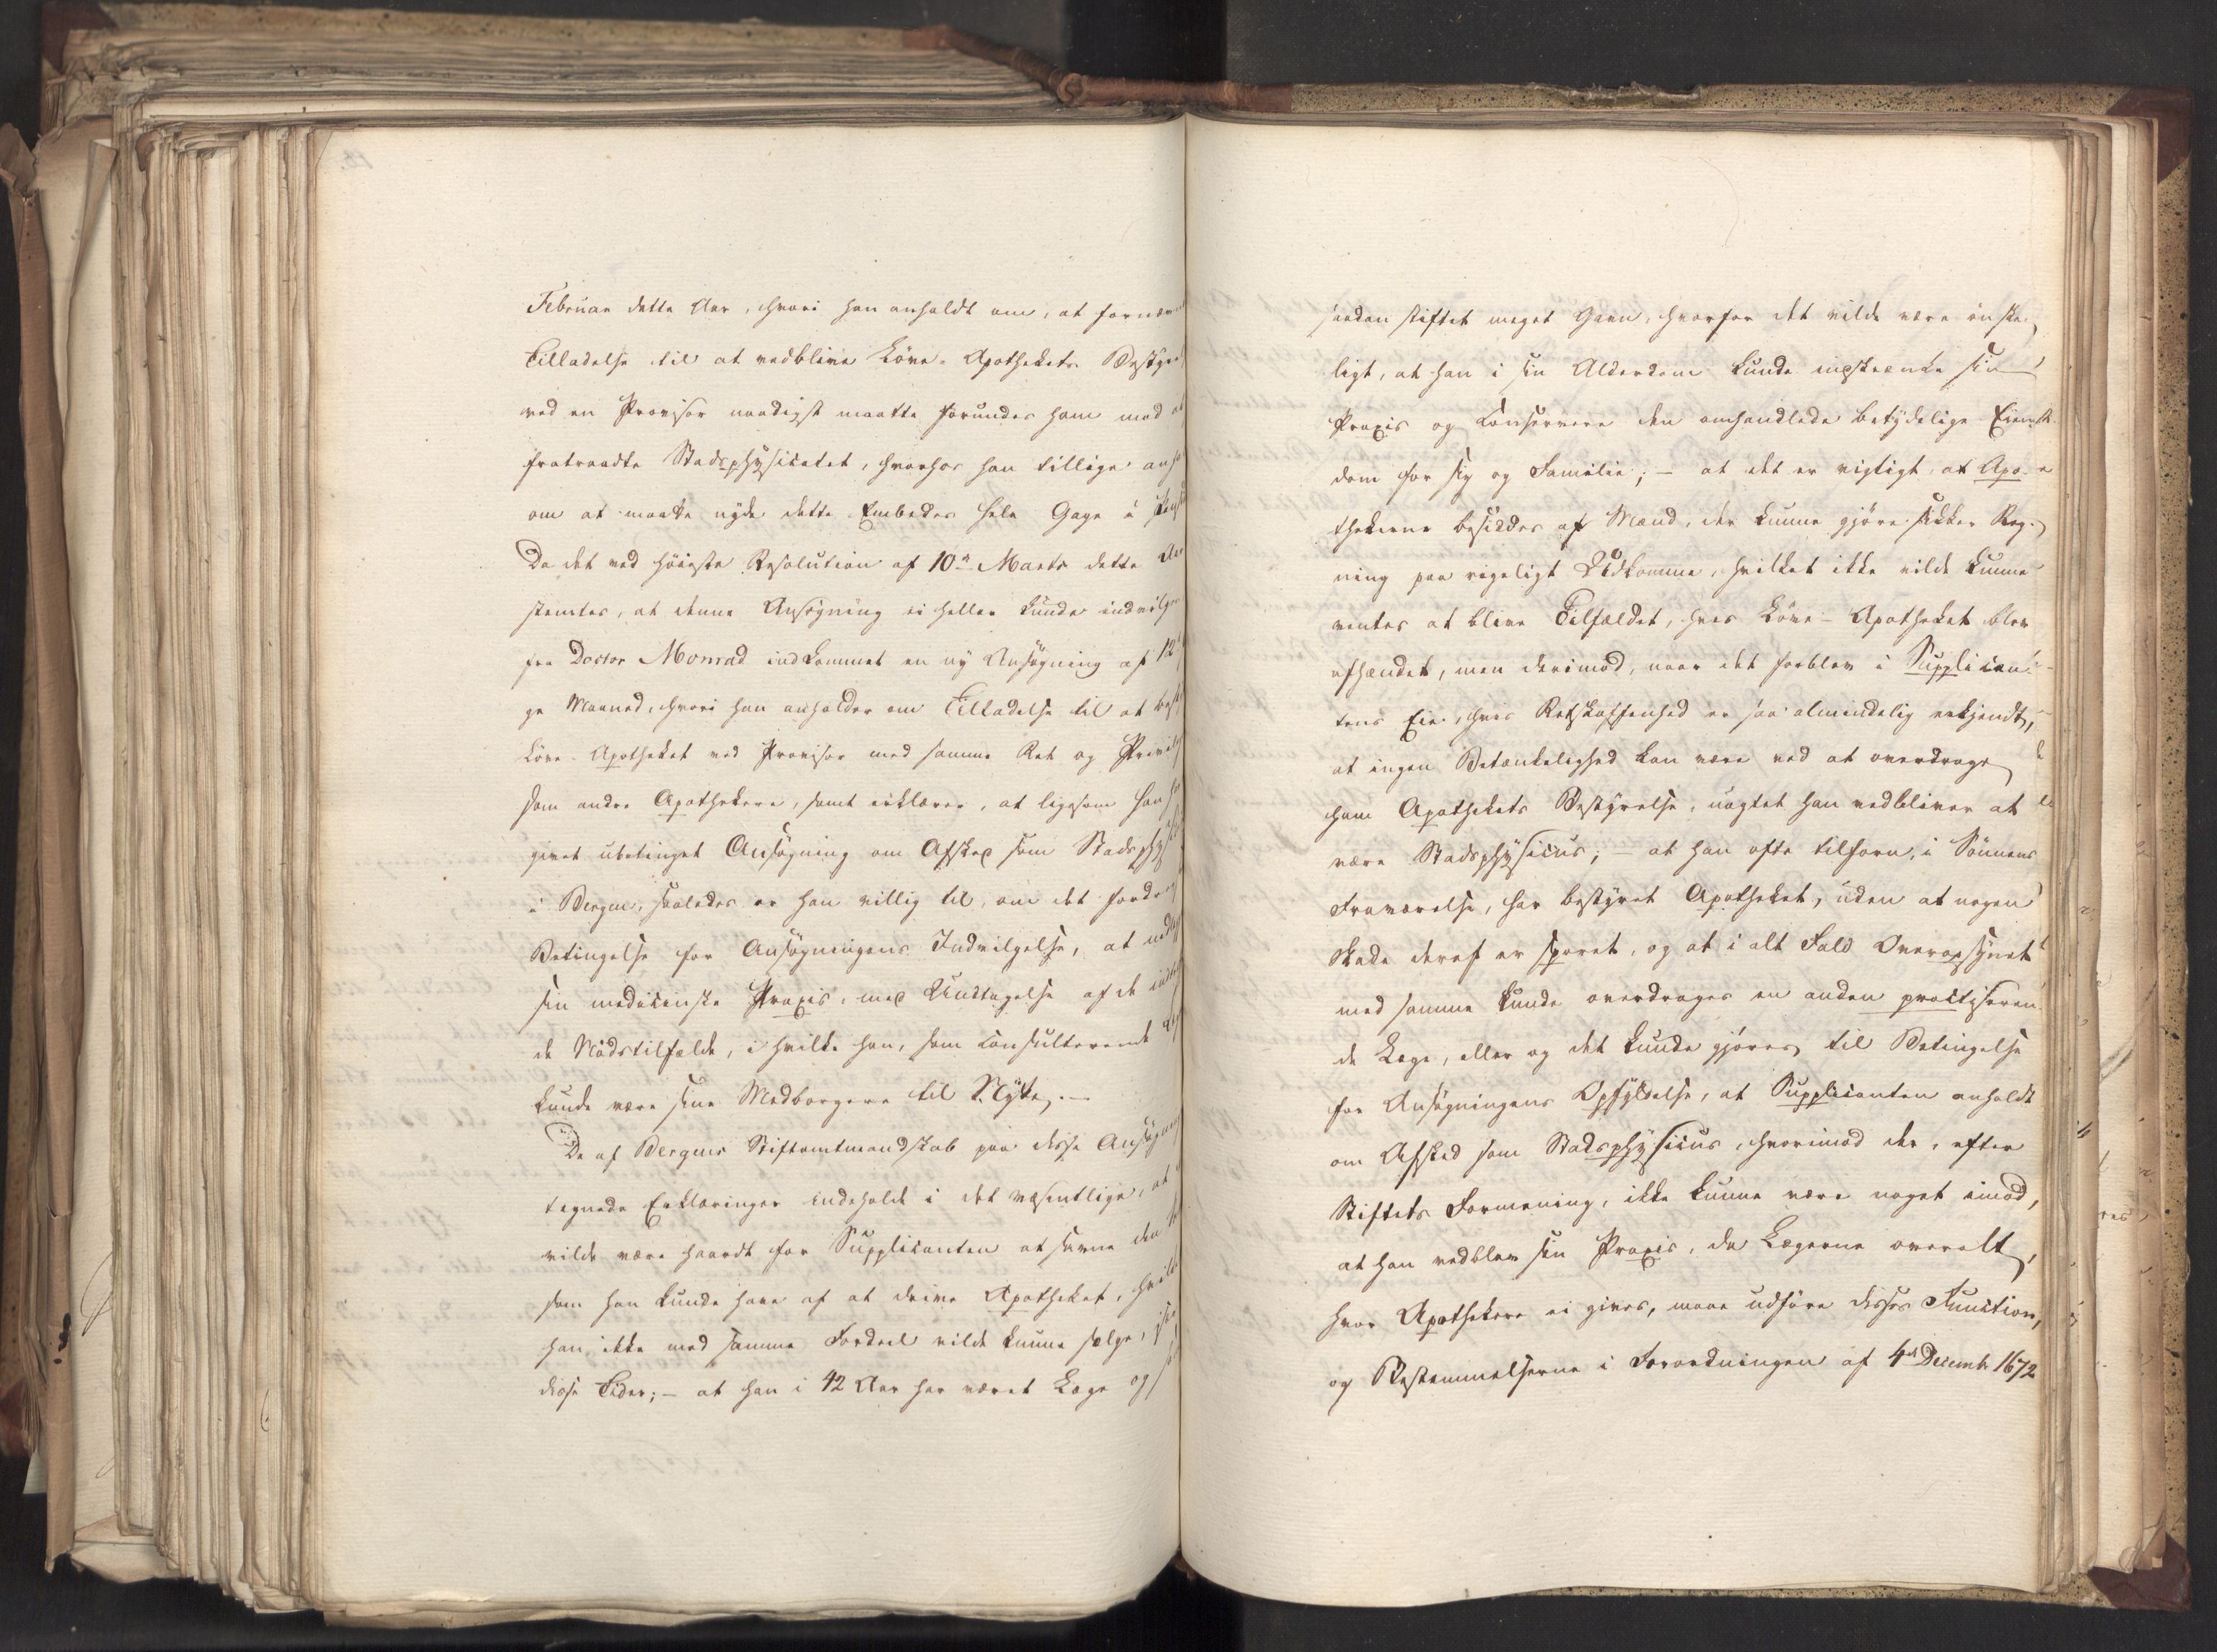 Februar dette Aar, hvori han anholdt om, at fornævn
Tilladelse til at vedblive Löve-Apothekets Bestyre
ved en Provisor naadigst maatte forundes ham mod at
fratraadte Stadsphysicatet, hvorhos han tillige anh
om at maatte nyde dette Embedes hele Gage i
Da det ved höieste Resolution af 10de Marts dette Aar
stemtes, at denne Ansögning ei heller kunde indvilges
fra Doctor Monrad indkommet en ny Ansögning af 12
ge Maaned, hvori han anholder om Tilladelse til at best
Löve-Apotheket ved Provisor med samme Ret og Privil
som andre Apothekere, samt erklærer, at ligesom han h
givet ubetinget Ansögning om Afsked som Stadsphys
i Bergen, saaledes er han villig til, om det fordr
Betingelse for Ansögningens Indvilgelse, at nedl
sin medicinske Praxis, med Undtagelse af de
de Nödstilfælde, i hvilke han, som consulterende
kunde være sine Medborgere til Nytte.-
De af Bergens Stiftamtmandskab paa disse Ansögn
tegnede Erklæringer indeholdt i det væsentlige, at
vilde være haardt for Supplicanten at savne den
som han kunde have af at drive Apotheket, hvilk
han ikke med samme Fordeel vilde kunne sælge, i
disse Tider; - at han i 42 Aar har været Læge og
saadan stiftet meget Gavn, hvorfor det vilde være önske
ligt, at han i sin Alderdom kunde indskrænke sin
Praxis og conservere den omhandlede betydelige Eien-
dom for sig og Familie; - at det er vigtigt, at Apo-
thekerne besiddes af Mænd, der kunne gjöre sikker Reg-
ning paa rigeligt Udkomme, hvilket ikke vilde kunne
ventes at blive Tilfældet, hvis Löve-Apotheket blev
afhændet, men derimod, naar det forblev i Supplican-
tens Eie, hvis Retskaffenhed er saa almindelig erkjendt,
at ingen Betænkelighed kan være ved at overdrage
ham Apothekets Bestyrelse, uagtet han vedbliver at
være Stadsphysicus; - at han ofte tilforn, i Sönnens
Fraværelse, har bestyret Apotheket, uden at nogen
Skade deraf er sporet, og at i alt Fald Overopsynet
med samme kunde overdrages en anden practiseren-
de Læge, eller og det kunde gjöres til Betingelse
for Ansögningens Opfyldelse, at Supplicanten anholdt
om Afsked som Stadsphysicus, hvorimod der, efter
Stiftets Formening, ikke kunne være noget imod,
at han vedblev sin Praxis, da Lægerne overalt,
hvor Apothekere ei gives, maae udföre disses Function,
og Bestemmelserne i Forordningen af 4de Decembr 1672